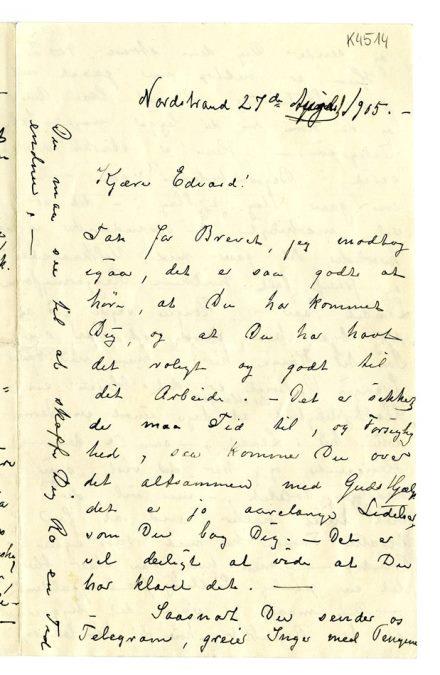 K4514
Nordstrand 27de August/1905. –
Kjære Edvard!
Tak for Brevet, jeg modtog
igaar, det er saa godt at
høre, at Du har kommet
Dig, og at Du har havt
det roligt og godt til
dit Arbeide. – Det er sikkert
der maa Tid til, og Forsigtig
hed, saa kommer Du over
det altsammen med Guds Hjælp
det er jo aarelange Lidelser
som Du bag Dig. – Det er
vel deiligt at vide at Du
har klaret det. —
Saasnart Du sender os
Telegram, greier Inger med Pengene
Du maa see til at skaffe Dig Ro en Tid
endnu, –